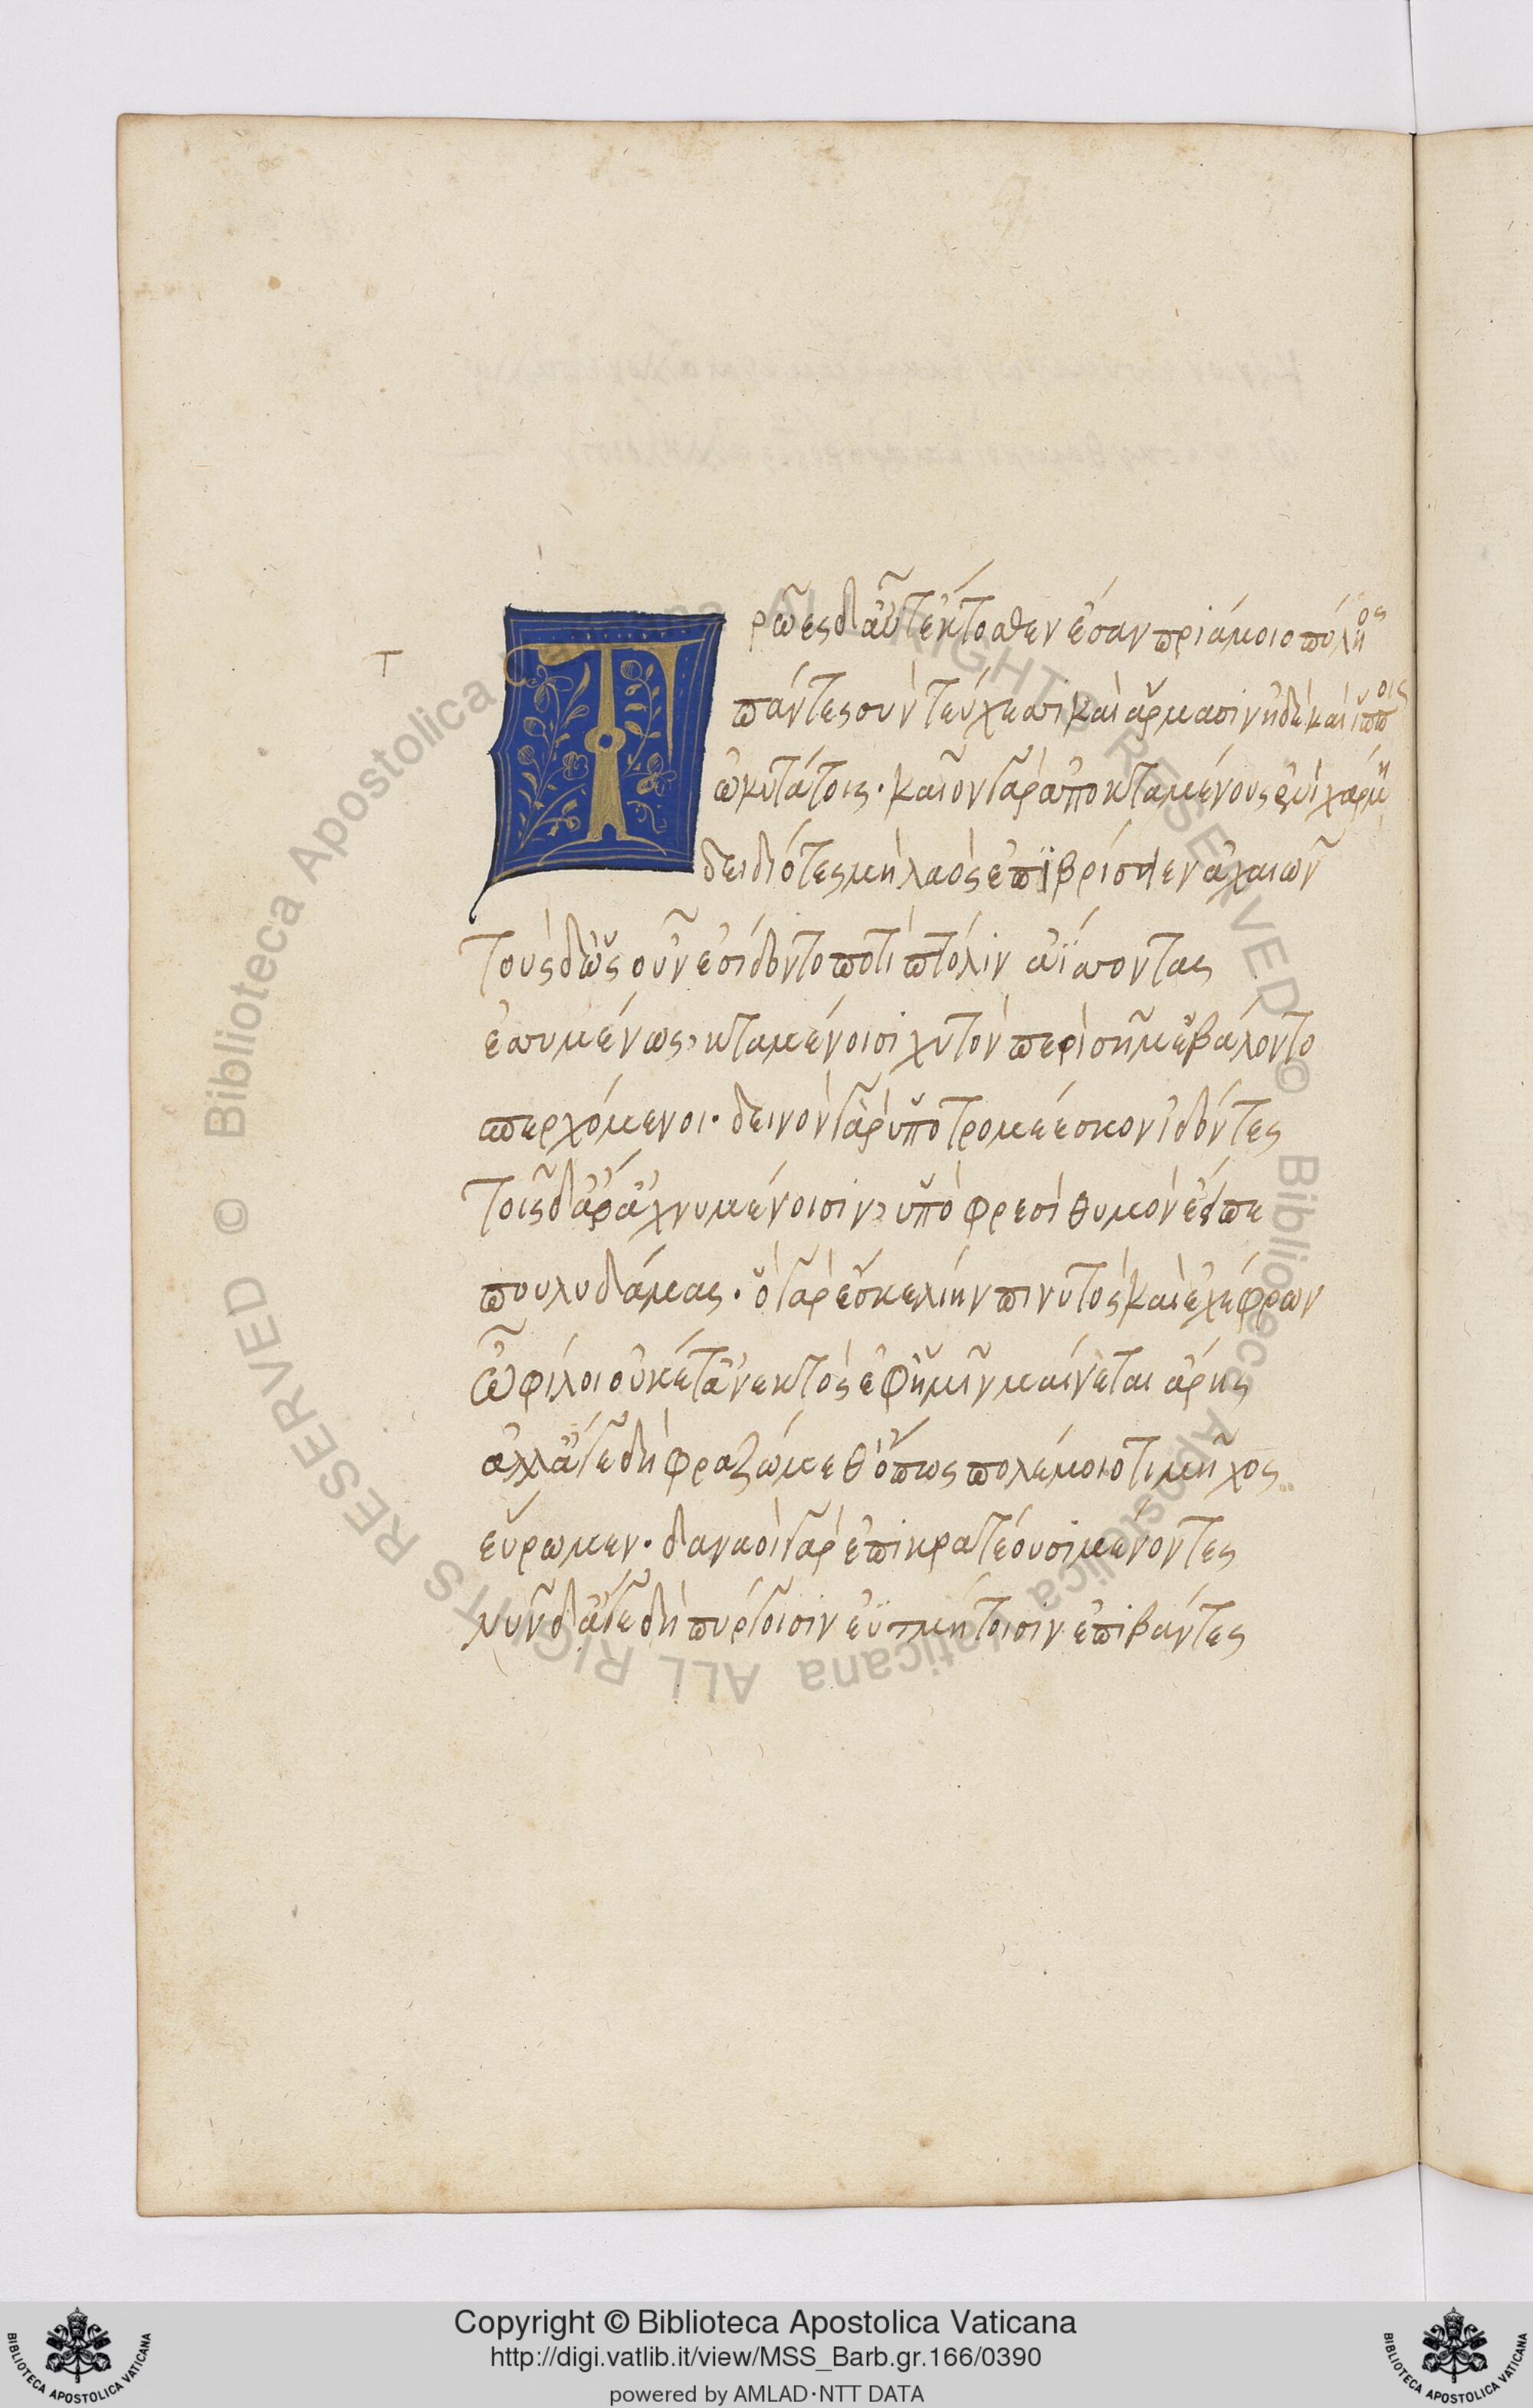 Τρῶες δ' αὖτ' ἔκτοσθεν ἔσαν πριάμοιο πόληος
πάντες σὺν τεύχεσσι καὶ ἅρμασιν ἠδὲ καὶ ἵπποις
ὠκυτάτοις· καῖον γὰρ ἀποκταμένους ἐνὶ χάρμῃ
δειδιότες μὴ λαὸς ἐπιβρίσειεν ἀχαιῶν
τοὺς δ' ὡς οὖν ἐσίδοντο ποτὶ πτόλιν ἀΐσσοντας
ἐσσυμένως, κταμένοισι χυτὸν περὶ σῆμ' ἐβάλοντο
σπερχόμενοι· δεινὸν γὰρ ὑποτρομέεσκον ἰδόντες
τοῖς δ' ἄρ' ἀχνυμένοισιν, ὑπὸ φρεσὶ θυμὸν ἔειπε
πουλυδάμας· ὃ γὰρ ἔσκε λίην πινυτὸς καὶ ἐχέφρων
ὦ φίλοι οὐκέτ' ἀνεκτὸς ἐφ' ἡμῖν μαίνεται ἄρης
ἀλλ' ἄγε δὴ φραζώμεθ' ὅπως πολέμοιό τι μῆχος
εὕρωμεν· δαναοὶ γὰρ ἐπικρατέουσι μένοντες
νῦν δ' ἄγε δὴ πύργοισιν ἐϋτμήτοισιν ἐπιβάντες
Τ
Copyright © Biblioteca Apostolica Vaticana
http://digi.vatlib.it/view/MSS_Barb.gr.166/0390
powered by AMLAD·NTT DATA
© Biblioteca Apostolica Vaticana ALL RIGHTS RESERVED
© Biblioteca Apostolica Vaticana ALL RIGHTS RESERVED
BIBLIOTECA APOSTOLICA VATICANA
BIBLIOTECA APOSTOLICA VATICANA